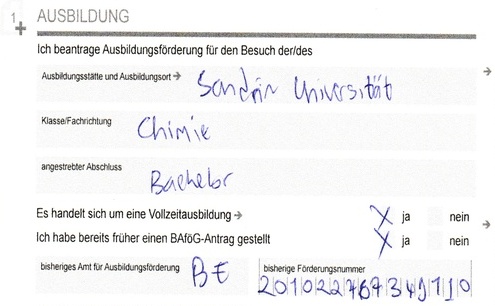 1 AUSBILDUNG
Ich beantrage Ausbildungsförderung für den Besuch der/des
Ausbildungsstätte und Ausbildungsort → Sandrin Universität
Klasse/Fachrichtung Chimie
angestrebter Abschluss Bachelor
Es handelt sich um eine Vollzeitausbildung → X ja nein
Ich habe bereits früher einen BAföG-Antrag gestellt X ja nein
bisheriges Amt für Ausbildungsförderung BE bisherige Förderungsnummer